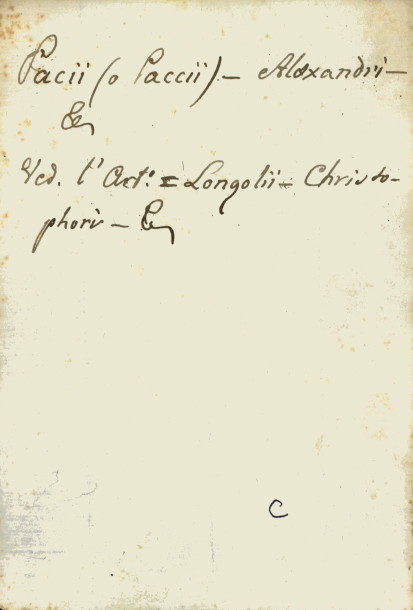 Pacii (o Paccii) — Alexandri —
&c
Ved. l' Art.º = Longolii — Christo-
phori — &c
C